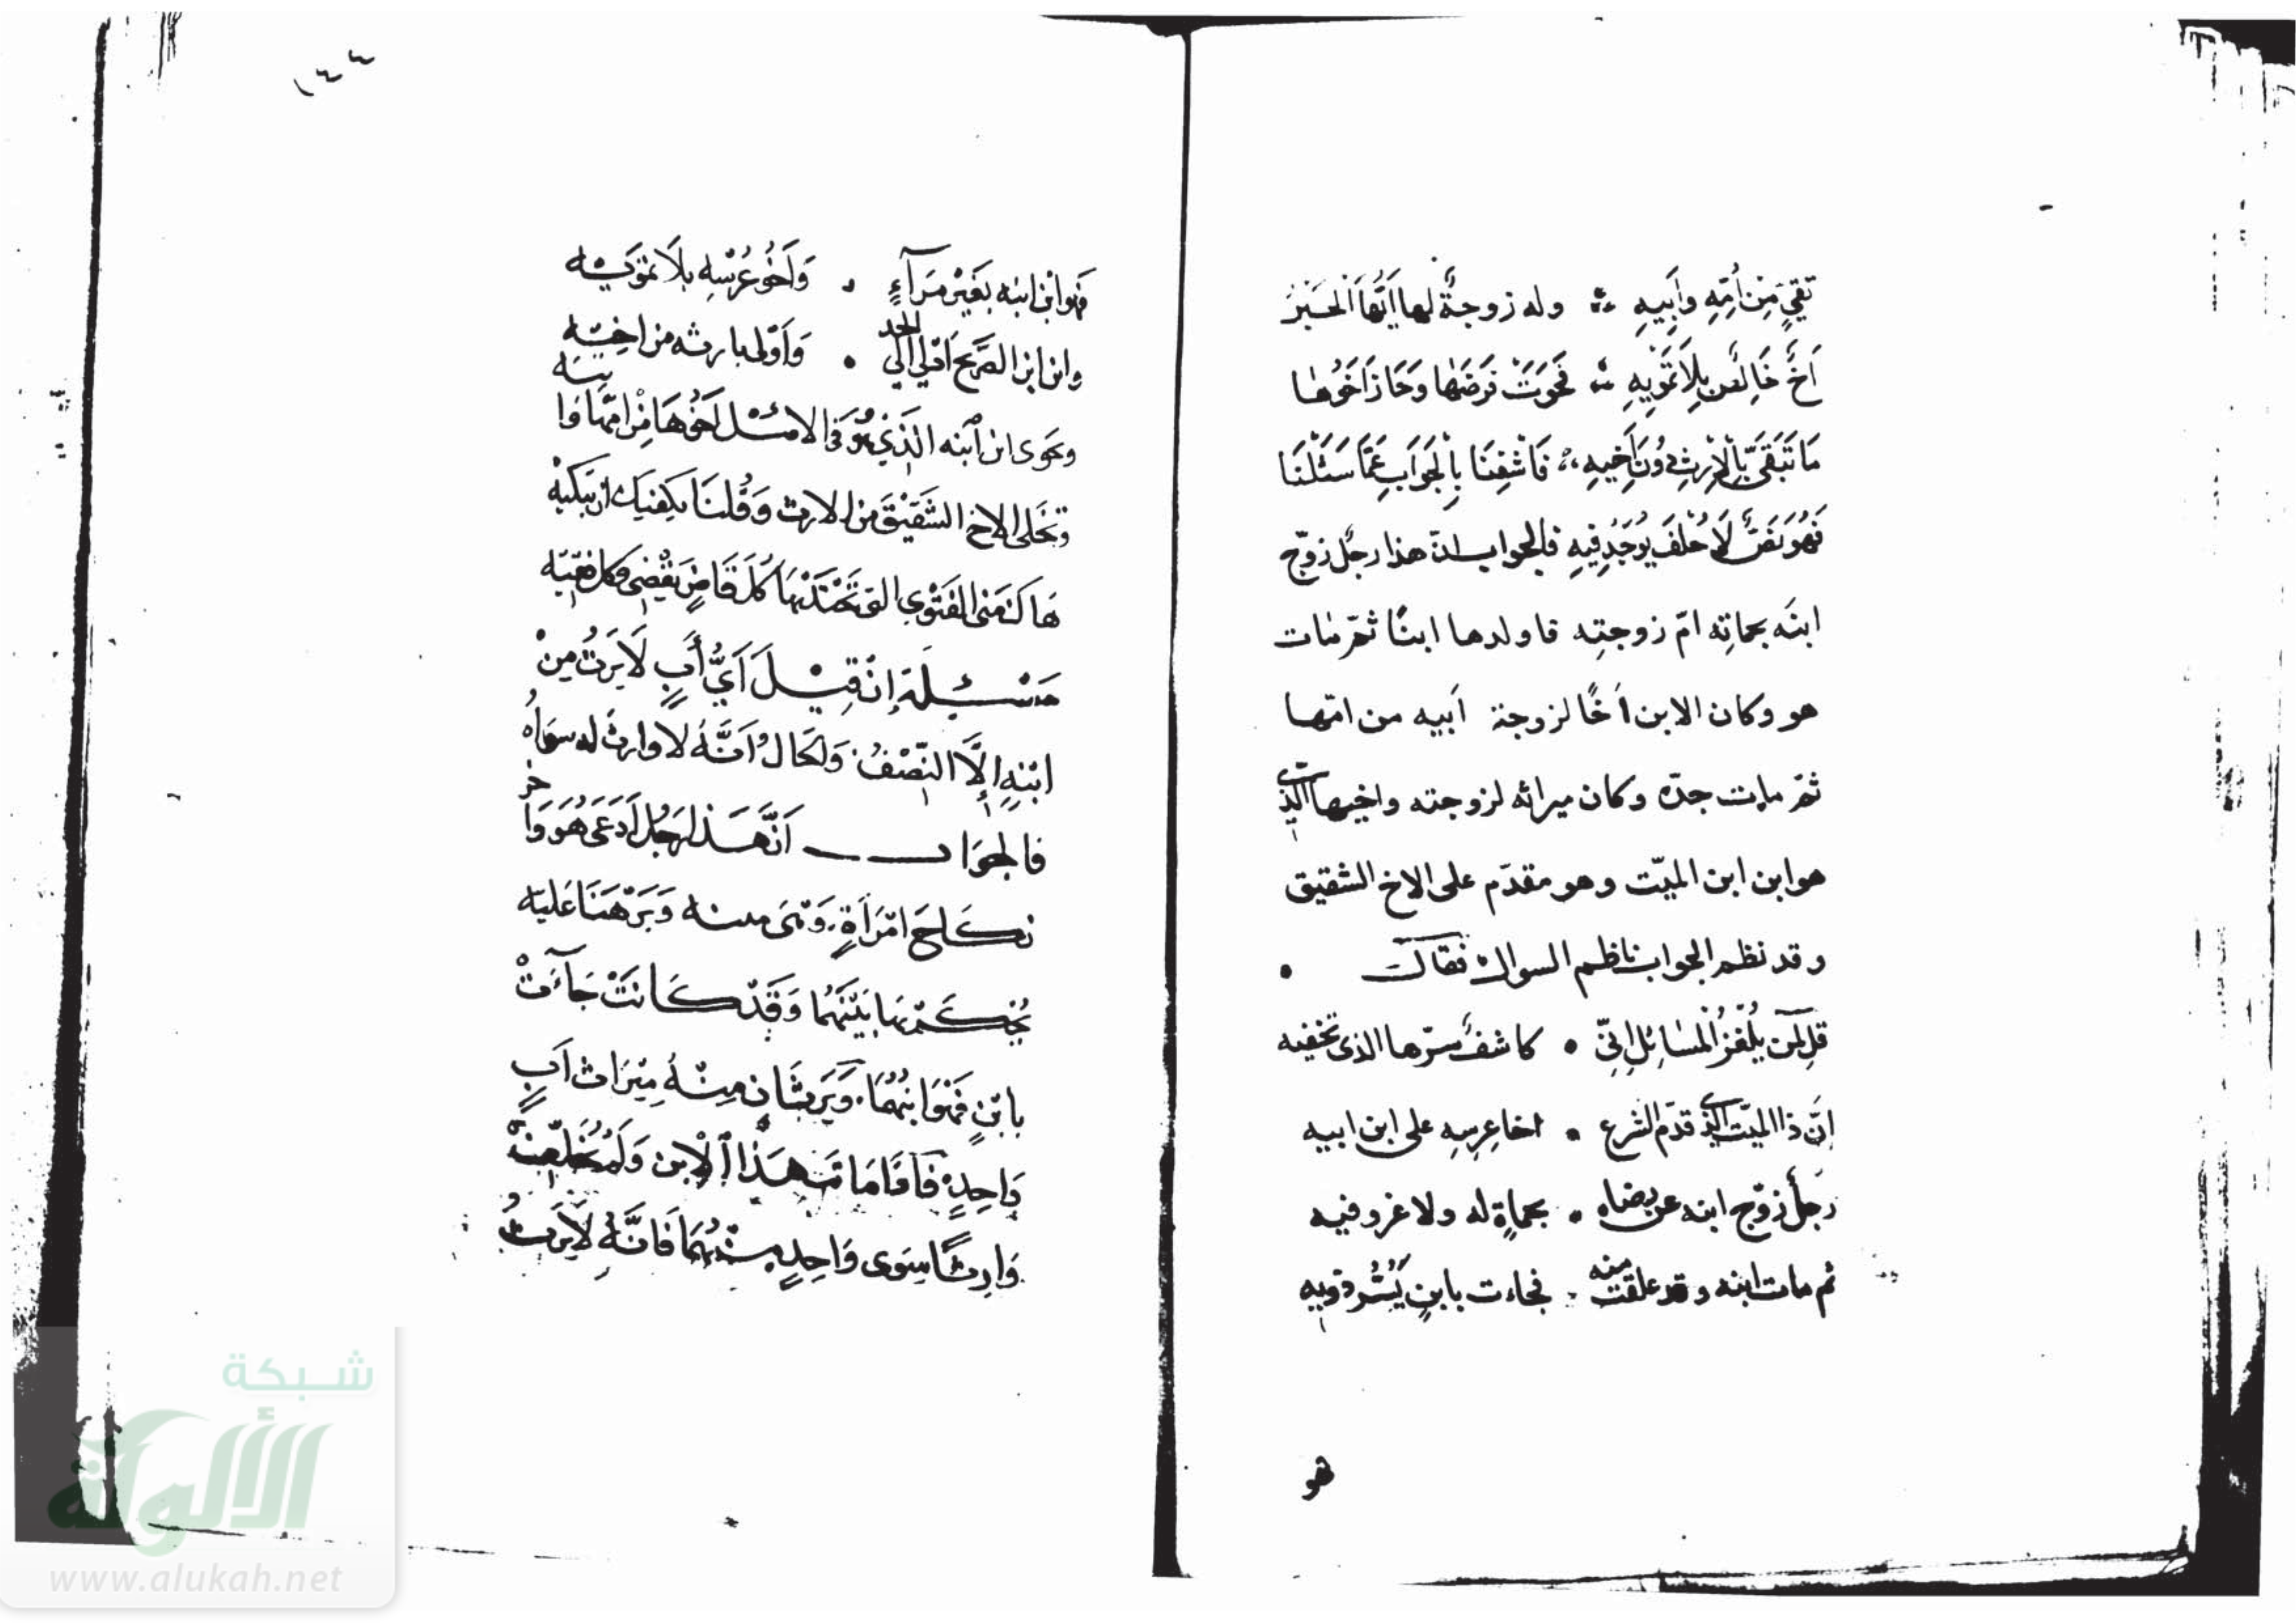 تقيٍ مِن أُمِّهِ وأَبِيهِ ؞ وله زوجةٌ لها أيُّها الحَبْرُ
أخٌ خَالِصٌ بِلاَ تَمْوِيهِ ؞ فحَوَتْ فرضَها وحَازَ أخُوها
مَا تَبَقَّى بِالإِرْثِ دُونَ أَخِيهِ ؞ فَاشْفِنَا بِالجَوَابِ عَمَّا سَئَلْنَا
فَهُوَ نَصٌّ لاَ خُلْفَ يُوجَدُ فِيهِ فالجواب انّ هذا رجلٌ زوّج
ابنَه بحماتِه امّ زوجتِه فاولدها ابنًا ثمّ مات
هو وكان الابن أخًا لزوجة أبيه من امّها
ثمّ مات جدّه وكان ميراثه لزوجته واخيها الذي
هو ابن ابن الميّت وهو مقدّم على الاخ الشقيق
وقد نظم الجواب ناظم السوال فقال
قل لمن يُلْغِزُ المسَائِلَ إِنّي • كاشفٌ سرّها الذى تخفيه
انّ ذا الميّت الذي قدّم الشرع • اخا عِرسِه على ابن ابيه
رجلٌ زوّج ابنه عن رضاه • بحماةٍ له ولا غرو فيه
ثم مات ابنه وقد علقت منه فجاءت بابنٍ يَسُرّ ذويه
هو
١٤٤
فهو ابن ابنه بغيْر مِرَآءٍ • وَأخُو عُرْسِهِ بلاَ تمويه
وابن ابن الصَّرِيح أدْلى الى الجد • وَأَوْلى بارثه من اخيه
وحَوى ابن ابنه الذي هُوَ في الاصْل اخُوهَا مِنْ امّها وَابنيه
وتخَلى الاخ الشقيْق من الارث وَقُلنَا يكفيك ان تبكيه
هَاك منى الفَتْوى التى يَحْتَذيهَا كُلُّ قَاضٍ يَقْضِى وكل فقيه
مَسْئِلَة إِنْ قِيْلَ أَيُّ أَبٍ لاَ يَرِثُ مِنْ
ابْنِهِ إلاَّ النِّصْفُ وَالحَالُ أَنَّهُ لا وارثَ له سوَاهُ
فالجوَاب أَنَّ هَذَا رَجُلٌ ادَعَى هُوَ وَاخر
نِكَاحَ امْرَأَةٍ وَبَرْهَنَا عَليْه
يُحْكَمْ بهَا بَيْنَهُمَا وَقَدْ كَانَتْ جَآءَتْ
بابْنٍ فَهُوَ ابنُهُمَا وَيَرِثَانِ مِنْهُ مِيْرَاث أَبٍ
وَاحِدٍ فَاذَا مَاتَ هَذَا الاِبن وَلَمْ يُخَلِّف
وَارِثًا سِوَى وَاحِدٍ مِنْهُمَا فَانَّهُ لاَ يَرِثُ
شبكة
الألوكة
www.alukah.net